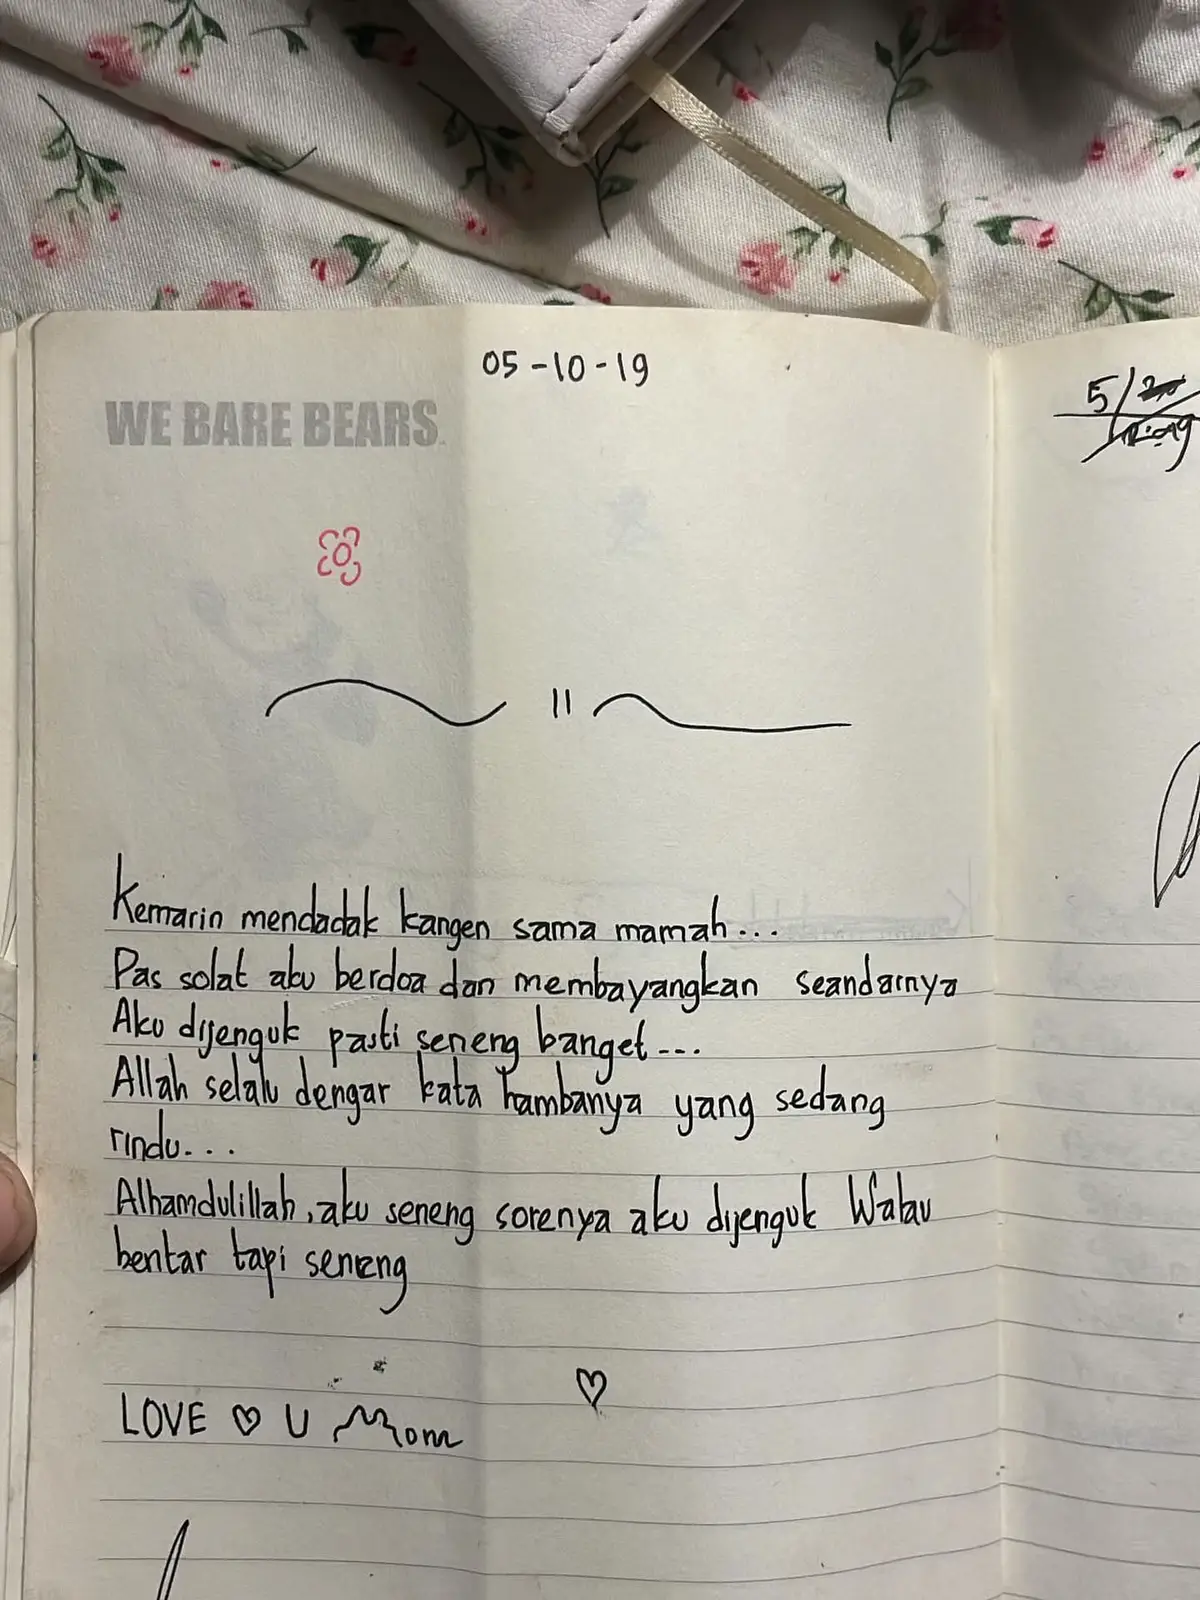 05-10-19
WE BARE BEARS
Kemarin mendadak kangen sama mamah...
Pas solat aku berdoa dan membayangkan seandarnya
Aku dijenguk pasti seneng banget...
Allah selalu dengar kata hambanya yang sedang
rindu...
Alhamdulillah, aku seneng sorenya aku dijenguk Walau
bentar tapi seneng
LOVE ♡ U Mom
5/